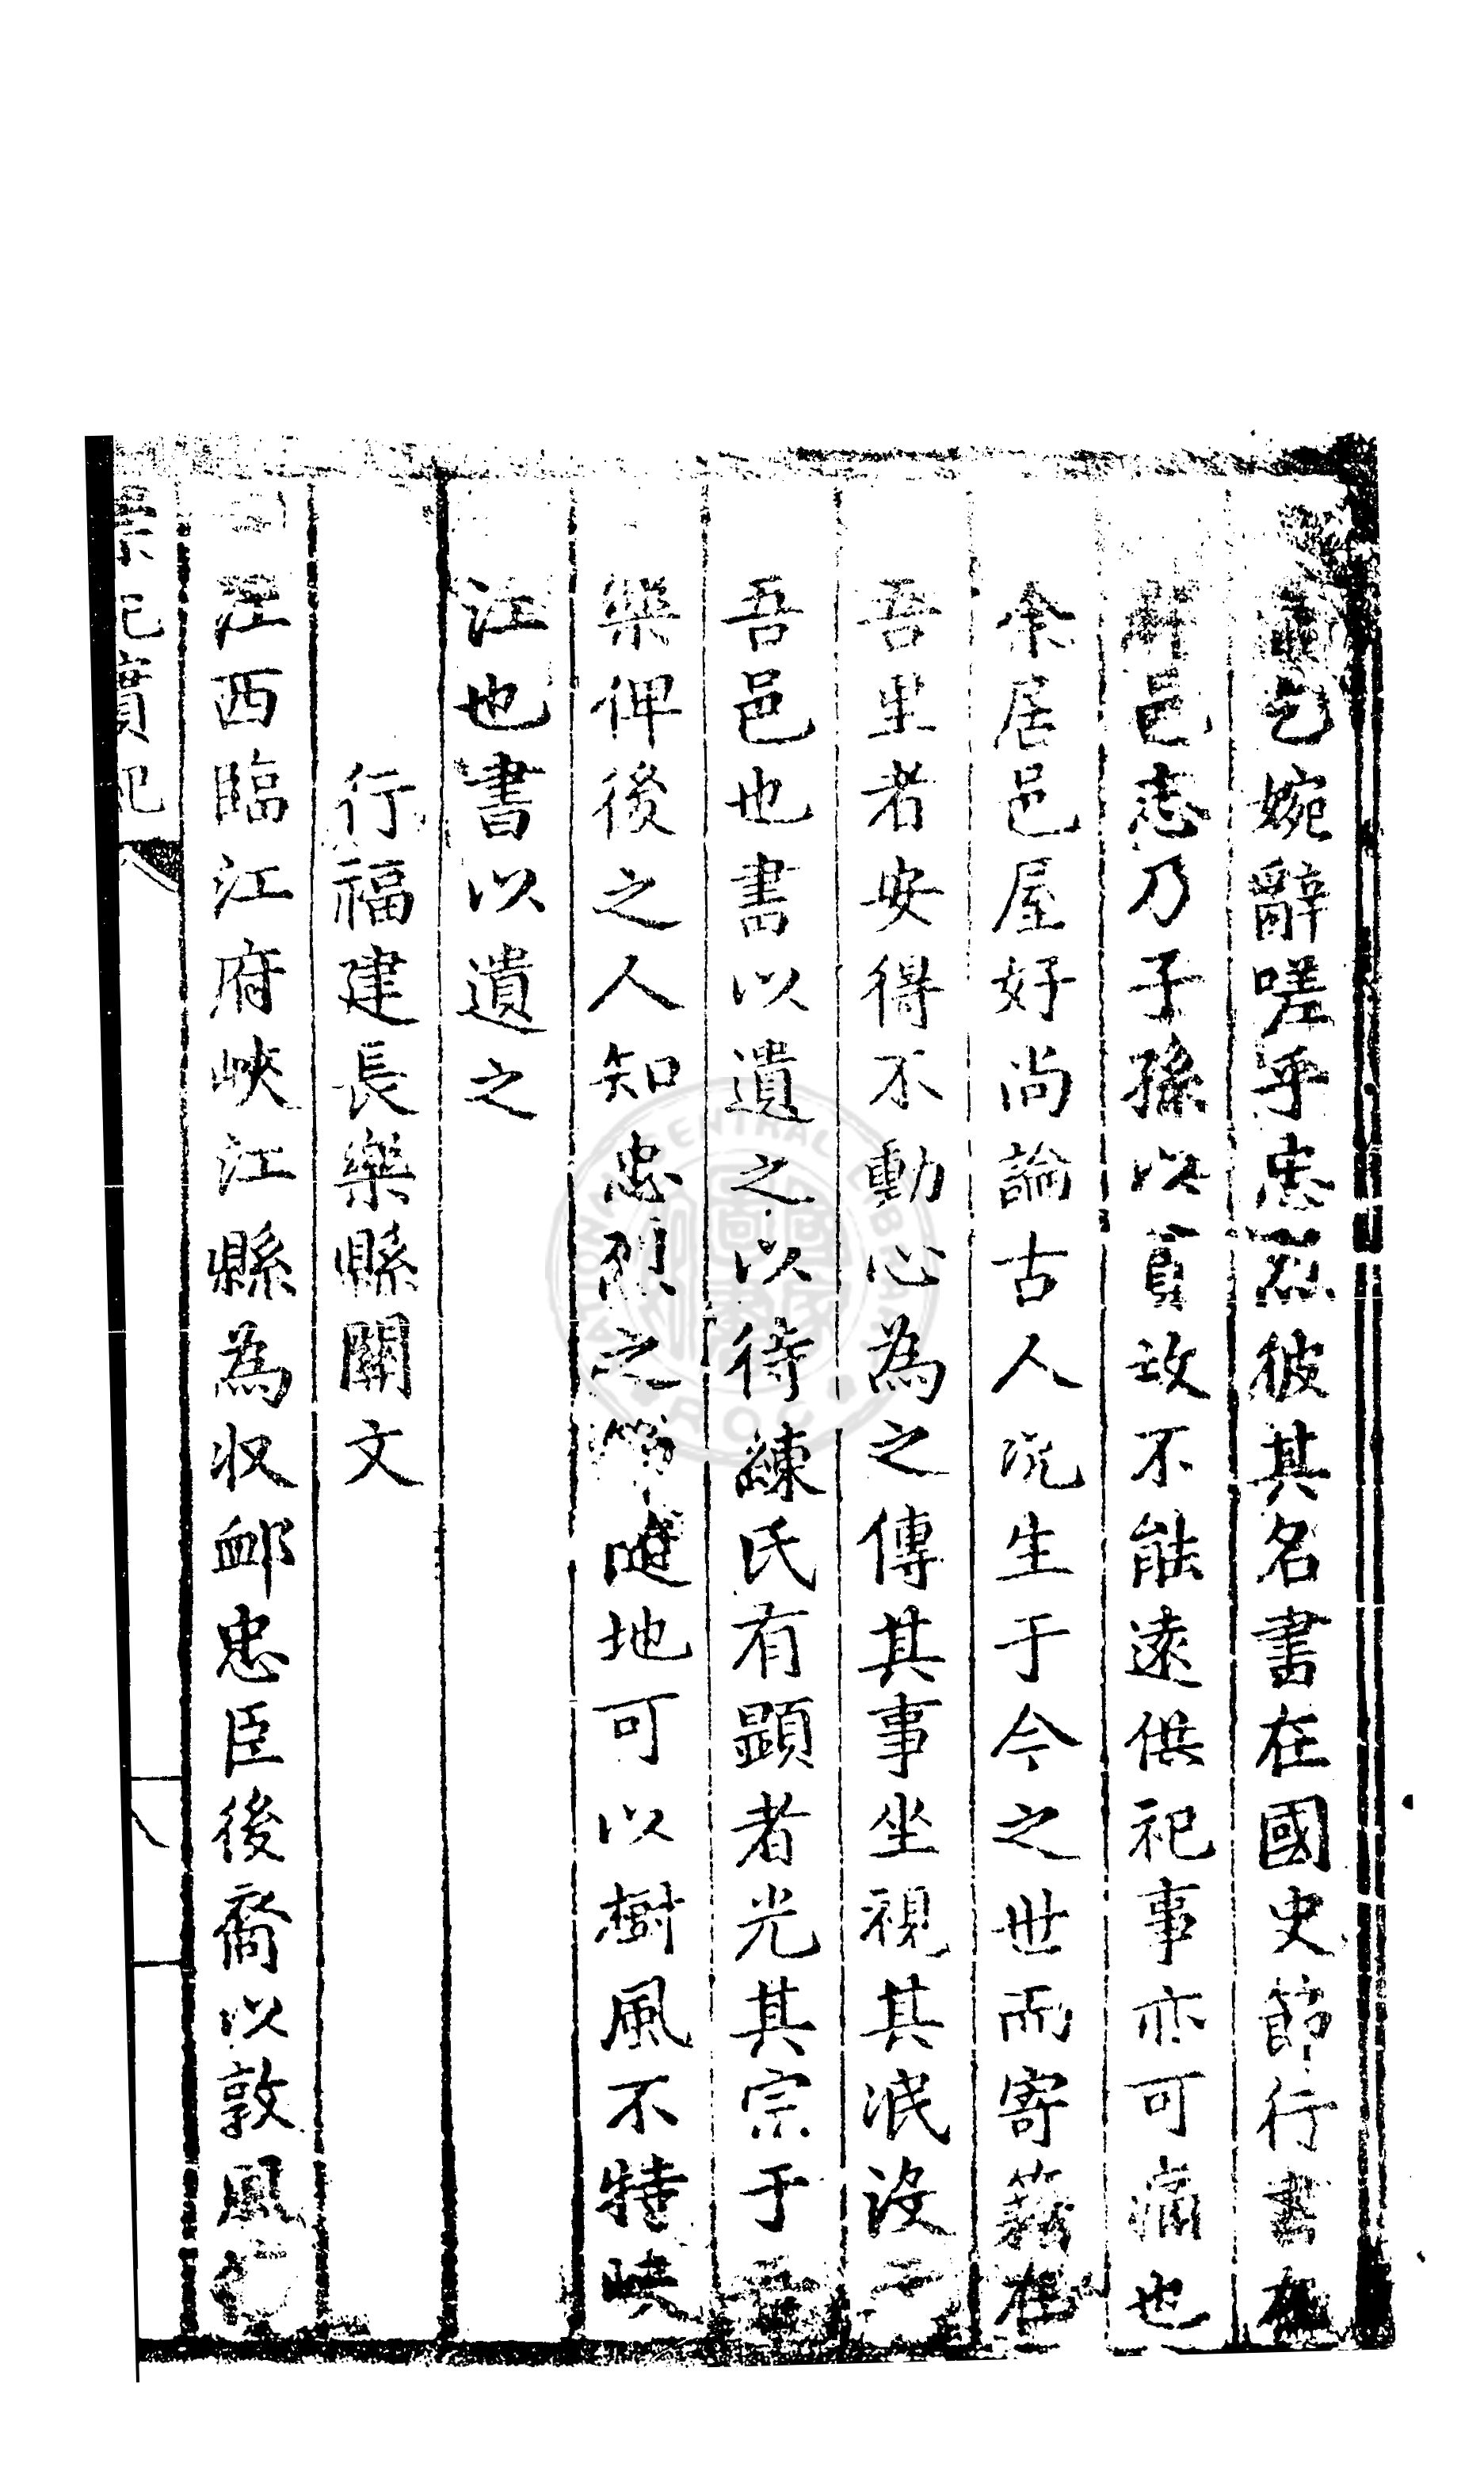 乞婉辭嗟乎忠烈彼其名書在國史節行書在
郡邑志乃子孫以貧故不能遠供祀事亦可痛也
余居邑屋好尚論古人况生于今之世而寄籍在
吾里者安得不動心為之傳其事坐視其泯沒于
吾邑也書以遺之以待諫氏有顯者光其宗于吾
樂俾後之人知忠烈之裔隨地可以樹風不特峽
江也書以遺之
行福建長樂縣關文
江西臨江府峽江縣為收衈忠臣後裔以敦風化
祀實紀
八
NATIONAL CENTRAL LIBRARY R.O.C.